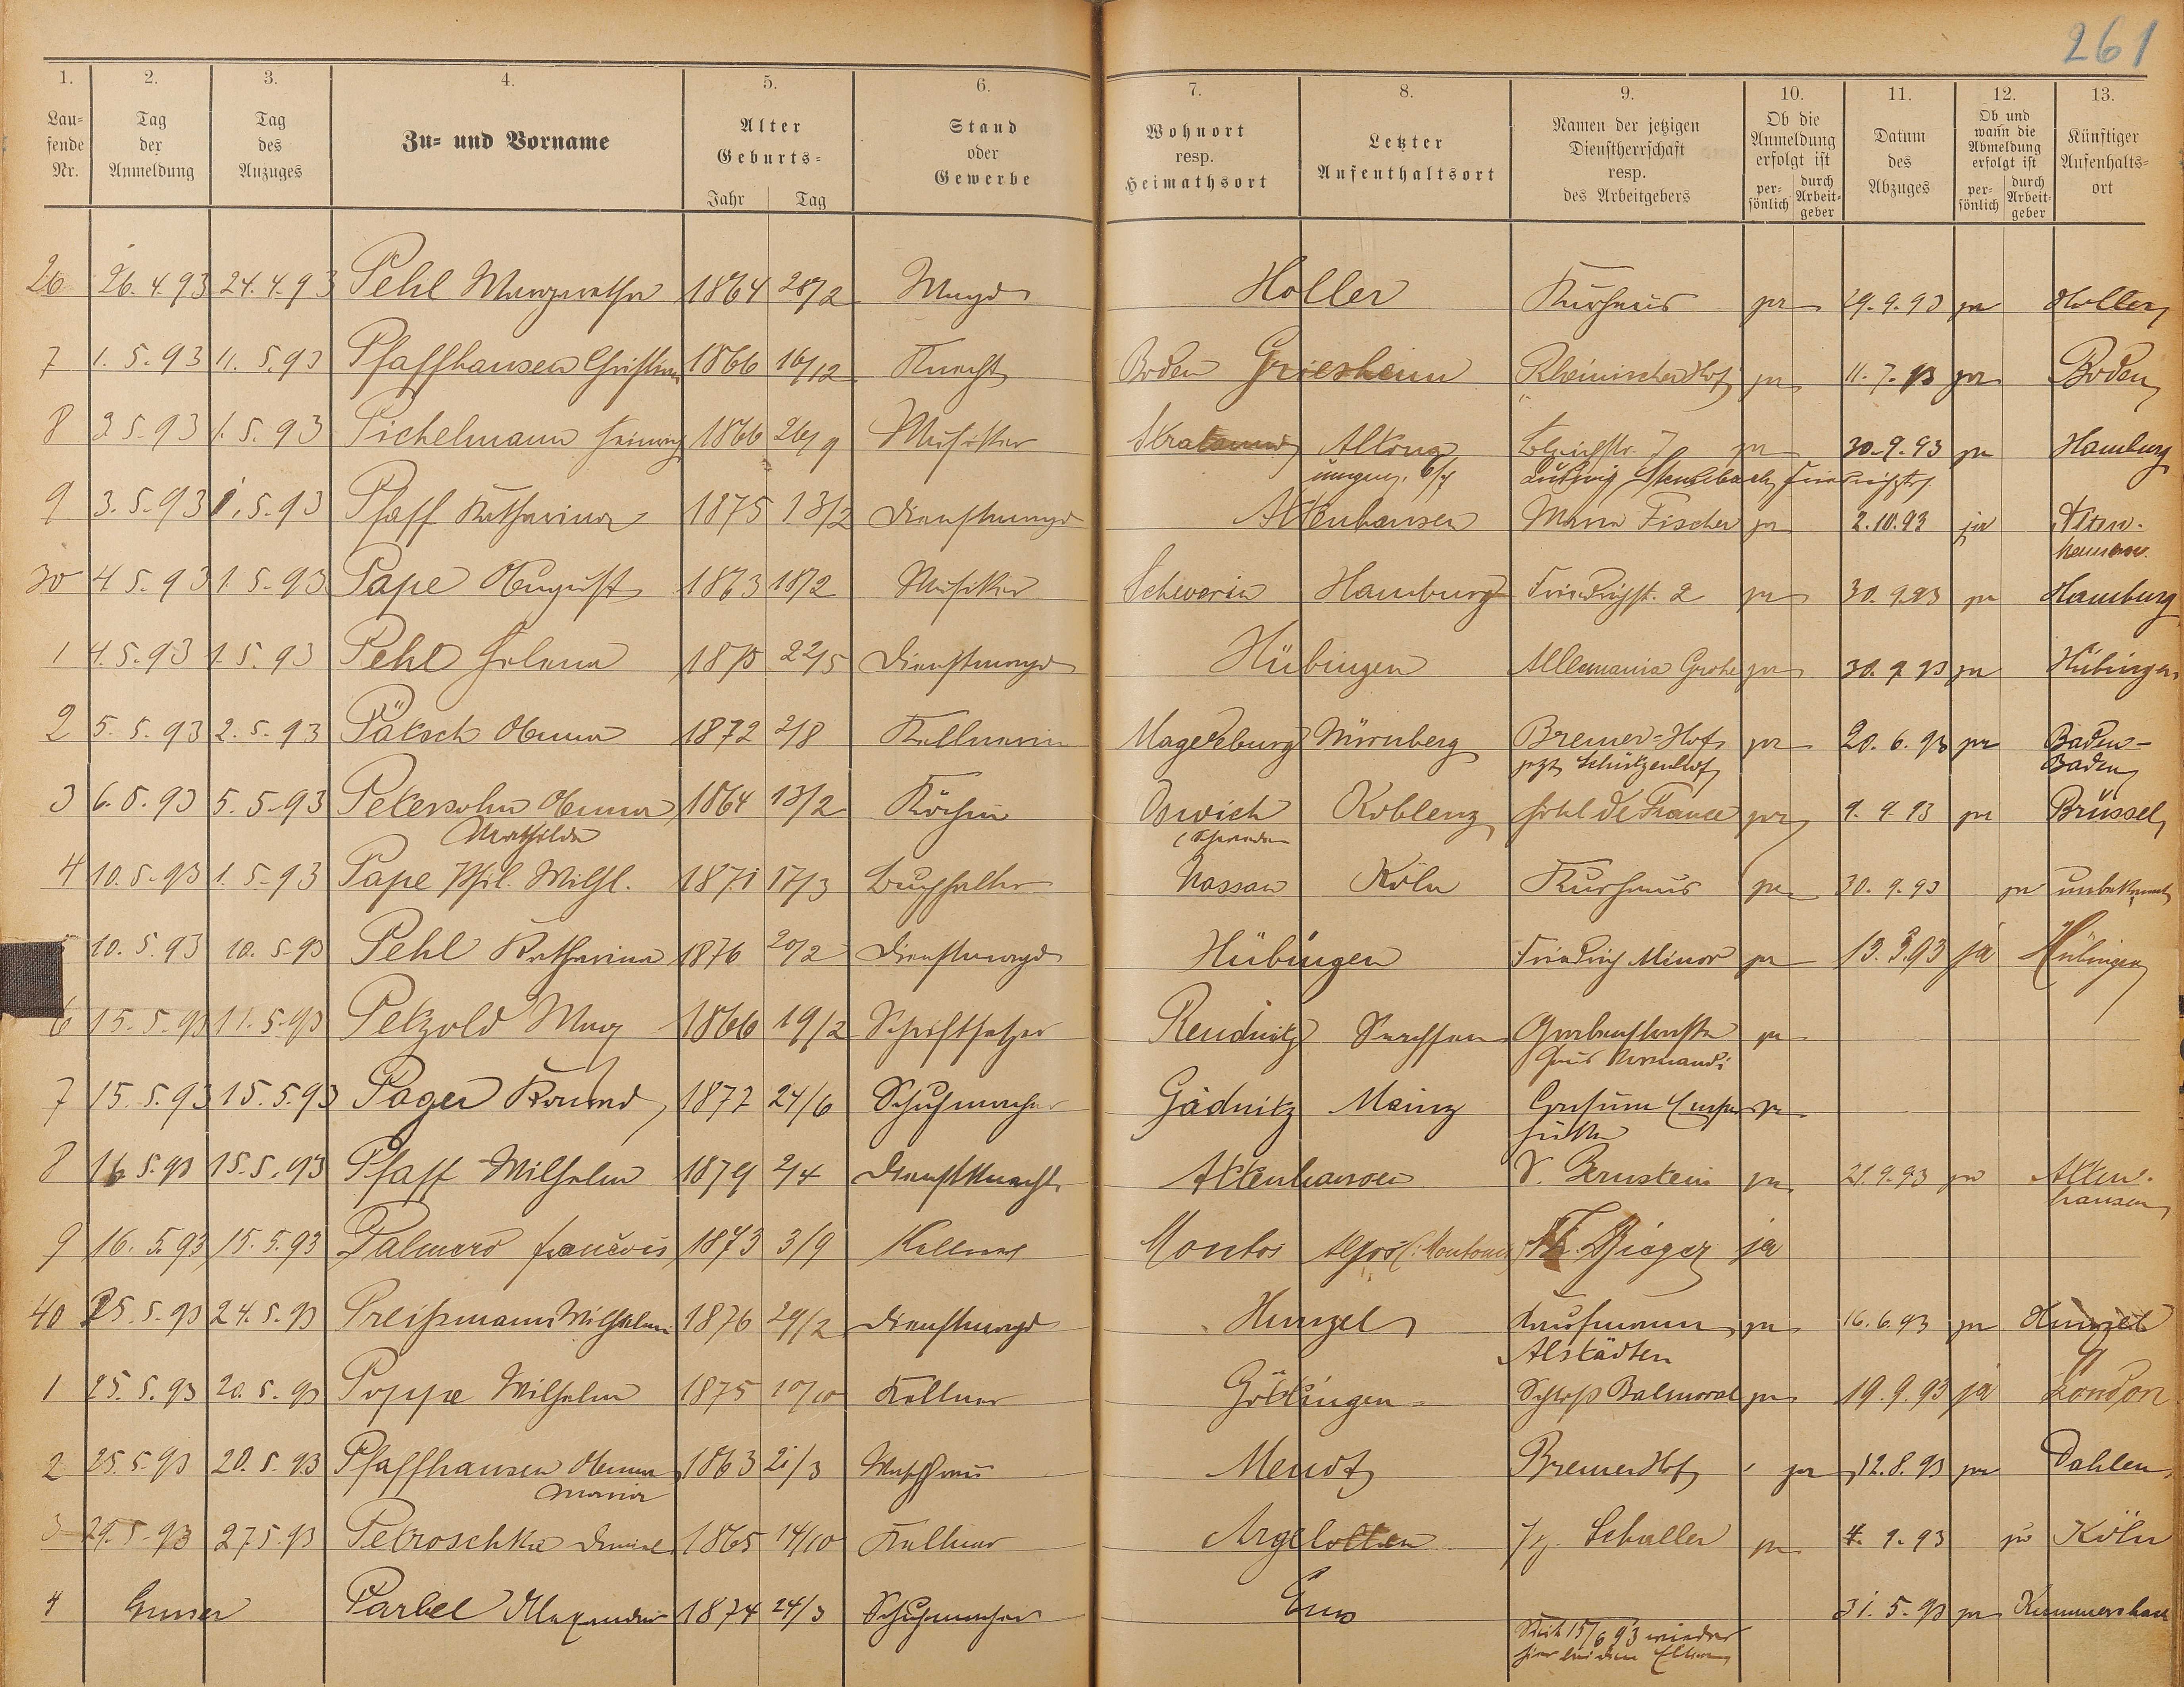 261
1. 2. 3. 4. 5. 6. 7. 8. 9. 10. 11. 12. 13.
Lau=fende Nr. | Tag der Anmeldung | Tag des Anzuges | Zu= und Vorname | Alter Geburts= Jahr Tag | Stand oder Gewerbe | Wohnort resp. Heimathsort | Letzter Aufenthaltsort | Namen der jetzigen Dienstherrschaft resp. des Arbeitgebers | Ob die Anmeldung erfolgt ist per=sönlich durch Arbeit=geber | Datum des Abzuges | Ob und wann die Abmeldung erfolgt ist per=sönlich durch Arbeit=geber | Künftiger Aufenthalts=ort
26 26.4.93 24.4.93 Pehl Margaretha 1864 28/2 Magd Holler Kurhaus ja 29.9.93 ja Holler
7 1.5.93 1.5.93 Pfaffhausen Christian 1866 16/12 Knecht Boden Griesheim Rheinischer Hof ja 11.7.93 ja Boden
8 3.5.93 1.5.93 Pichelmann Heinrich 1866 26/9 Musiker Altona 7 ja 30.9.93 ja Hamburg
Ludwig
9 3.5.93 1.5.93 Pfaff Katharina 1875 13/2 Dienstmagd Attenhausen Maria Fischer ja 2.10.93 ja Atten-
hausen
30 4.5.93 1.5.93 Pape August 1873 18/2 Musiker Schwerin Hamburg Friedrichstr. 2 ja 30.9.93 ja Hamburg
1 4.5.93 1.5.93 Pehl Helena 1875 22/5 Dienstmagd Hübingen Allemania Grohe ja 30.9.93 ja Hübingen
2 5.5.93 2.5.93 Pätsch Anna 1872 2/8 Kellnerin Magdeburg Nürnberg Bremer=Hof ja 20.6.93 ja Baden-
jetzt Schützenhof Baden
3 6.5.93 5.5.93 Petersohn Anna 1864 13/2 Köchin Koblenz Hotel de France ja 9.9.93 ja Brüssel
Mathilde
4 10.5.93 1.5.93 Pape Phil. Wilh. 1871 17/3 Buchhalter Nassau Köln Kurhaus ja 30.9.93 ja unbekannt
10.5.93 10.5.93 Pehl Katharina 1876 20/2 Dienstmagd Hübingen Friedrich Minor ja 13.3.93 ja Hübingen
6 15.5.93 11.5.93 Petzold Max 1866 19/2 Schriftsetzer Reudnitz Sachsen Grabenstraße ja
Haus
7 15.5.93 15.5.93 Pager Konrad 1872 24/6 Schuhmacher Gädnitz Mainz ja
8 16.5.93 15.5.93 Pfaff Wilhelm 1879 2/4 Dienstknecht Attenhausen S. Bernstein ja 21.9.93 ja Atten-
hausen
9 16.5.93 15.5.93 Palmero francois 1873 3/9 Kellner ja
40 25.5.93 24.5.93 Preißmann Wilhelmine 1876 29/2 Dienstmagd Hunzel Kaufmann ja 16.6.93 ja Hunzel
Alstädten
1 25.5.93 20.5.93 Poppe Wilhelm 1875 10/10 Kellner Göttingen Schloß Balmoral ja 19.9.93 ja London
2 25.5.93 20.5.93 Pfaffhausen Anna 1863 21/3 Waschfrau Meudt Bremer Hof ja 12.8.93 ja Dahlen
Maria
3 29.5.93 27.5.93 Petroschka Daniel 1865 14/10 Kellner Argelotten Schaller ja 4.9.93 ja Köln
4 Emser Parbel Alexander 1874 24/3 Schuhmacher Ems 31.5.93 ja
Seit 15/6 93 wieder
hier bei den Eltern